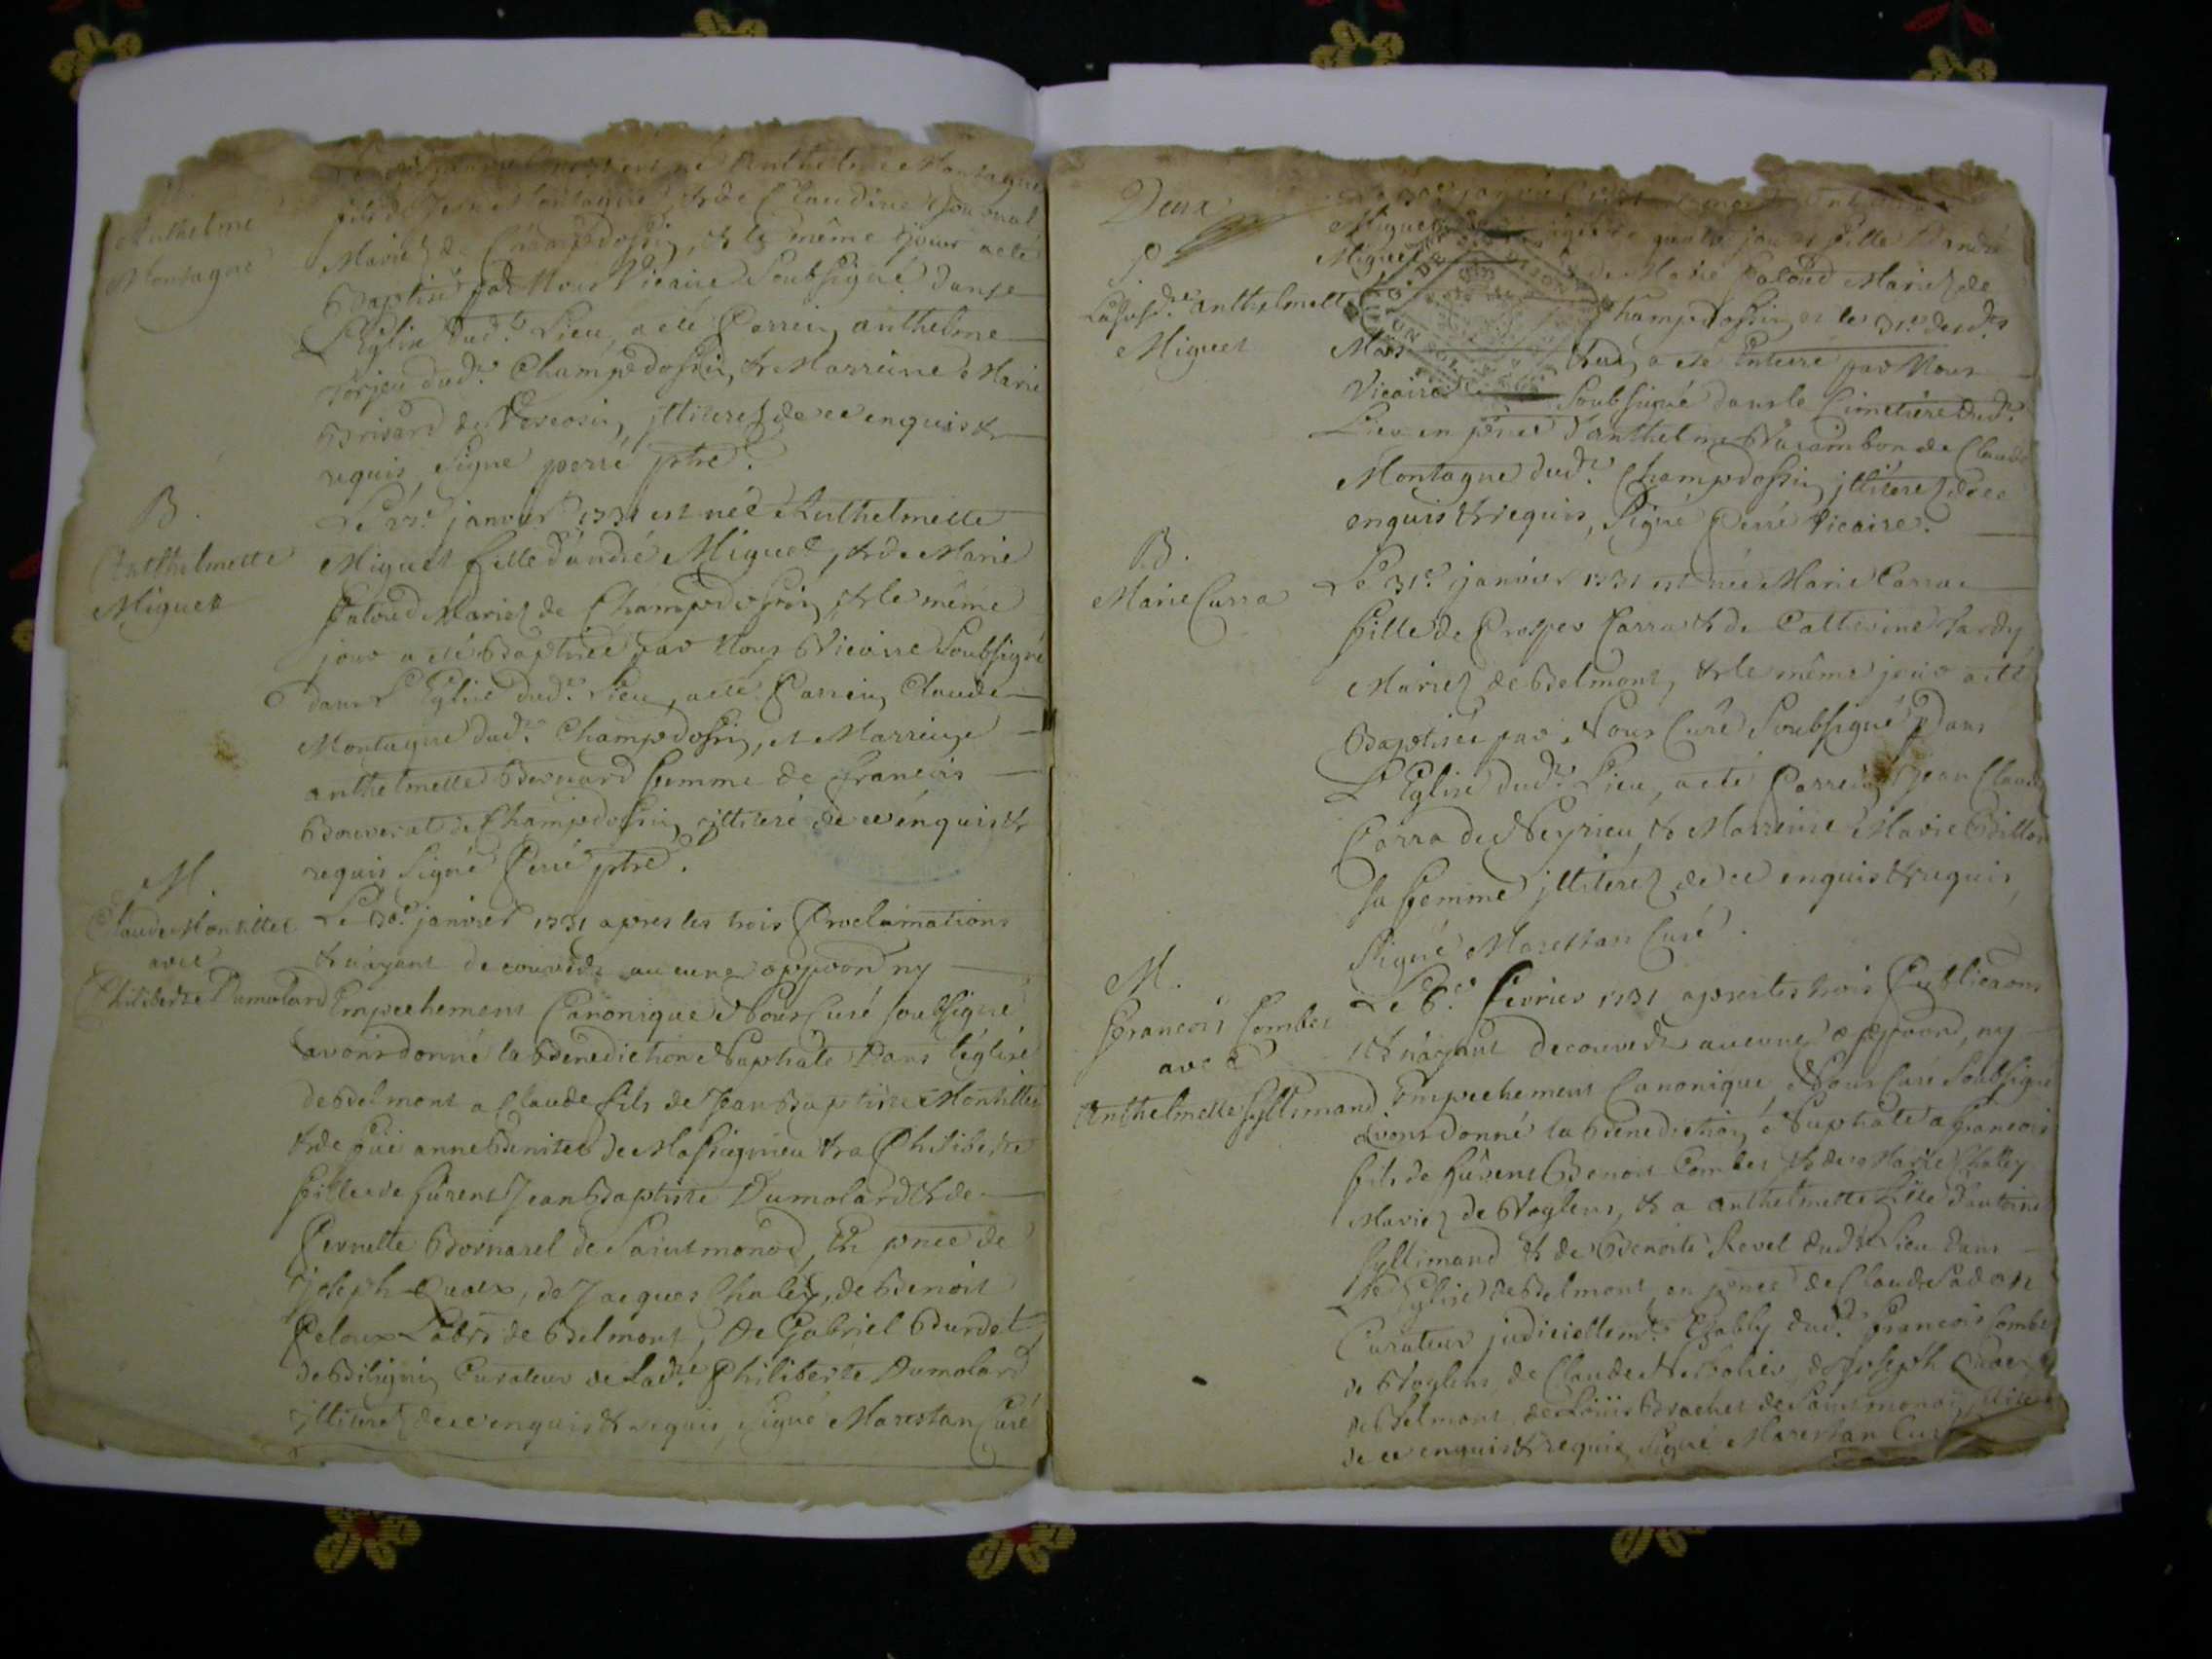 janvier est né Anthelme Montagne
Anthelme
Montagne
fils de Jean Montagne, & de Claudine
Mariez de Champdossin, & le même jour a eté
Baptisé par Nous Vicaire Soubsigné dans
L'Eglise dud.t Lieu, a eté Parrein anthelme
dud.t Champdossin, & Marreine Marie
Brisard de illiterez de ce enquis &
requis, Signé perré ptre.
B.
Anthelmette
Miguet
Le janvier 1731 est née Anthelmette
Miguet fille d'andré Miguet, & de Marie
Patoud Mariez de Champdossin & le même
jour a eté Baptisée par Nous Vicaire Soubsigné
dans L'Eglise dud.t Lieu, a eté Parrein Claude
Montagne dud.t Champdossin, et Marreine
anthelmette Bernard femme de francois
Bouverat de Champdossin illiteré de ce enquis &
requis Signé Perré ptre.
M.
Claude Montillet
avec
Philiberte Dumolard
Le 30.e janvier 1731 apres les trois Proclamations
& n'ayant decouvert aucune oppoon ny
Empechement Canonique Nous Curé soubsigné
avons donné la Benediction Nuptiale Dans l'église
de Belmont a Claude fils de Jean Baptiste Montillet
& de fûe anne Benitet de Massignieu & a Philiberte
fille de fûrent Jean Baptiste Dumolard & de
Pernette Bornarel de Saintmonod, En pnce de
Joseph Quaix, de Jacques Chaley, de Benoit
Peloux Labrs de Belmont, De Gabriel Burdet
de Bilignin Curateur de Lad.te Philiberte Dumolard
illiterez de ce enquis & requis, Signé Marestan Curé
Deux
S.
anthelmette
Miguet
30.e janvier
Miguet agée de quatre jours fille D'andré
Miguet & de Marie Patoud Mariez de
Champdossin et le 31.e desd.ts
Mois & an, a eté Enterré par Nous
Vicaire Soubsigné dans le Cimetiere dud.t
Lieu en pnce d'anthelme Vuarambon de Claude
Montagne dud.t Champdossin illiterez de ce
enquis & requis, Signé Perré Vicaire.
B.
Marie Carra
Le 31.e janvier 1731 est née Marie Carra
fille de Prosper Carra & de Catherine hardy
Mariez de Belmont, & le même jour a eté
Baptisée par Nous Curé Soubsigné Dans
L'Eglise dud.t Lieu, a eté Parrein Jean Claude
Carra de Neyrieu, & Marreine Marie Billon
sa femme illiterez de ce enquis & requis,
Signé Marestan Curé.
M.
francois Combet
avec
Anthelmette Syllimand
Le 6.e fevrier 1731 apres les trois Publicaons
& n'ayant decouvert aucune oppoon, ny
Empechement Canonique, Nous Curé Soubsigné
avons donné la Benediction Nuptiale a francois
fils de fûrent Benoit Combet & de Marie Chaley
Mariez de Voglens, & a anthelmette fille d'antoine
Syllimand & de Benoite Revel dud.t Lieu dans
L'Eglise de Belmont en pnce de Claude
Curateur judiciellem.t Etably dud.t francois Combet
de Voglens, de Claude de Joseph Quaix
de Belmont, de Loüis Brachet de Saintmonod, illiterez
de ce enquis & requis Signé Marestan Curé